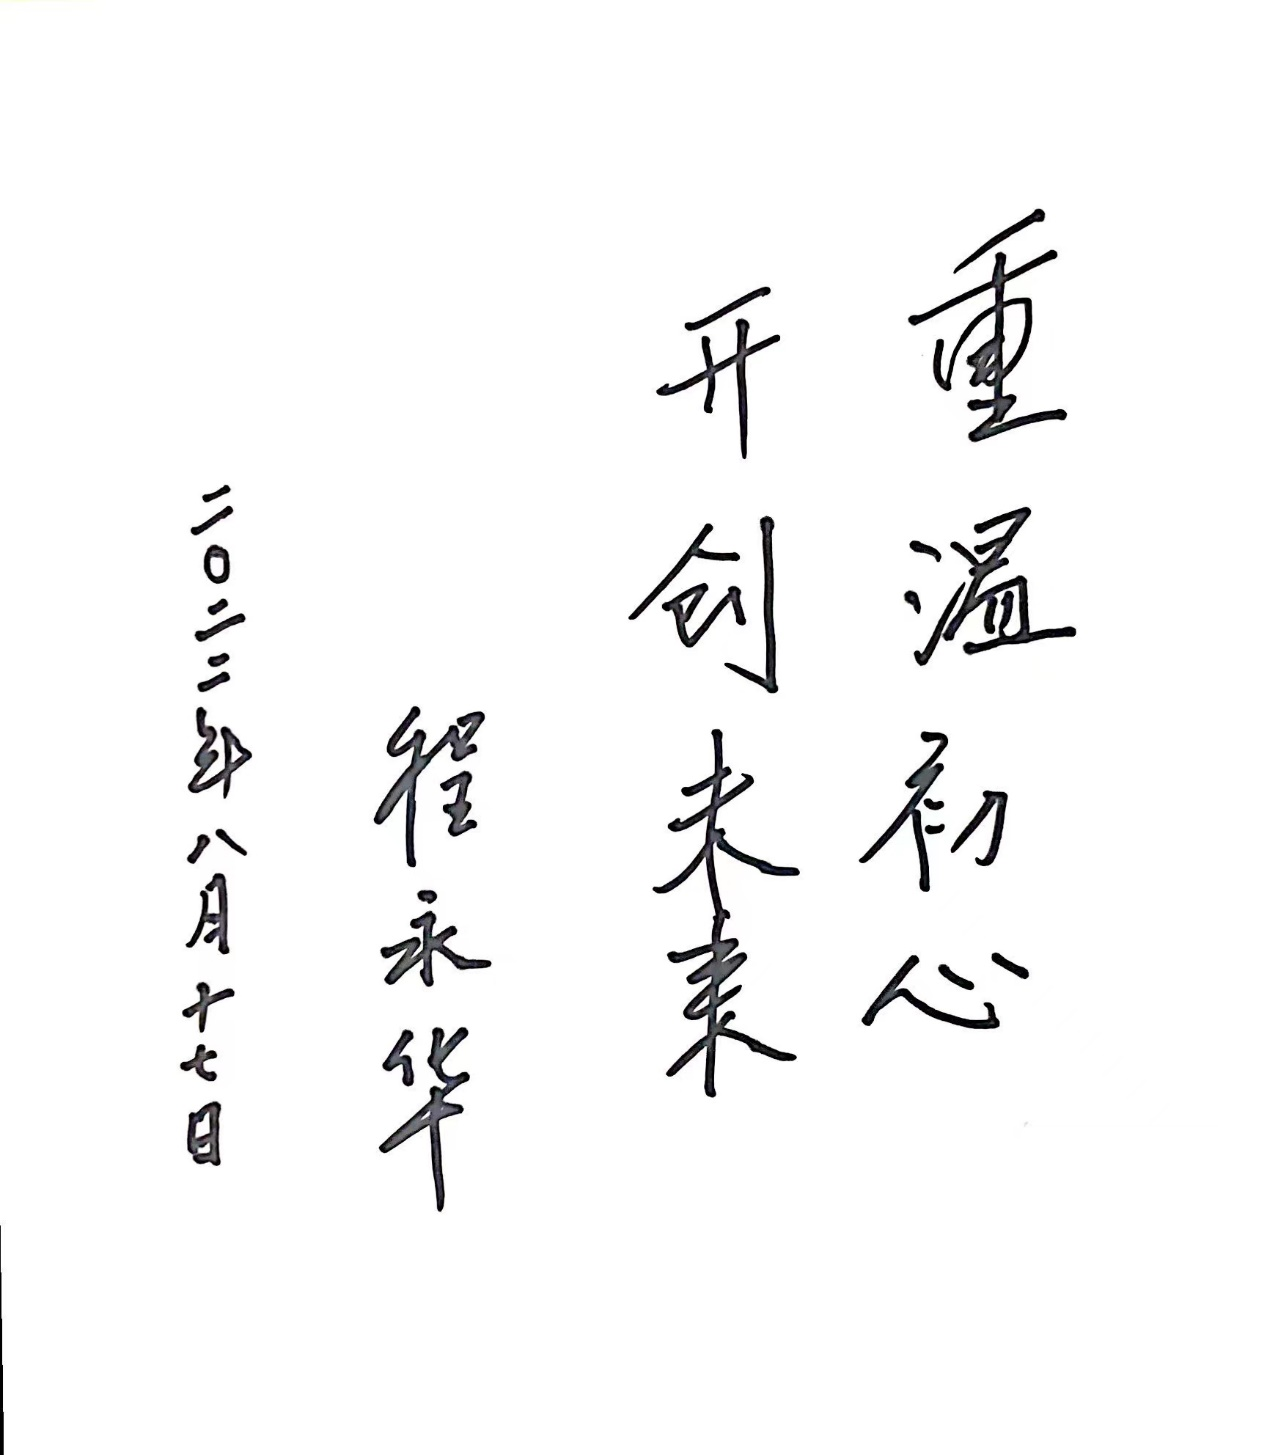 重温初心
开创未来
程永华
二〇二二年八月十七日